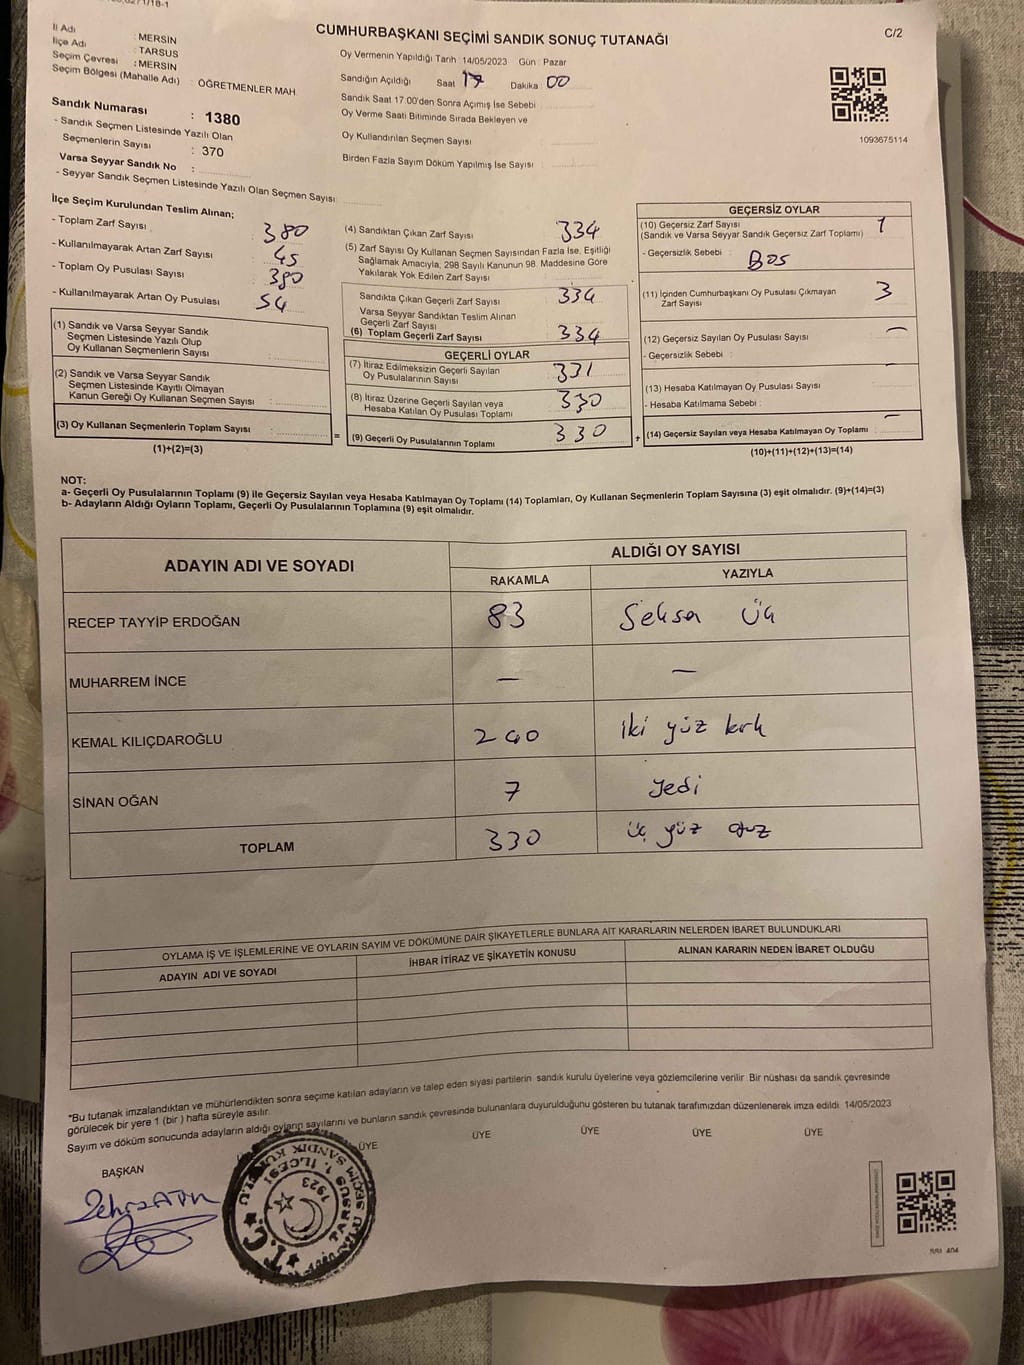 CUMHURBAŞKANI SEÇİMİ SANDIK SONUÇ TUTANAĞI
C/2
İl Adı : MERSİN
İlçe Adı : TARSUS
Seçim Çevresi : MERSİN
Seçim Bölgesi (Mahalle Adı) : ÖĞRETMENLER MAH.
Sandık Numarası : 1380
- Sandık Seçmen Listesinde Yazılı Olan
Seçmenlerin Sayısı : 370
Varsa Seyyar Sandık No :
- Seyyar Sandık Seçmen Listesinde Yazılı Olan Seçmen Sayısı:
Oy Vermenin Yapıldığı Tarih: 14/05/2023 Gün : Pazar
Sandığın Açıldığı Saat 17 Dakika 00
Sandık Saat 17.00'den Sonra Açımış İse Sebebi
Oy Verme Saati Bitiminde Sırada Bekleyen ve
Oy Kullandırılan Seçmen Sayısı
Birden Fazla Sayım Döküm Yapılmış İse Sayısı :
1093675114
İlçe Seçim Kurulundan Teslim Alınan;
- Toplam Zarf Sayısı : 380
- Kullanılmayarak Artan Zarf Sayısı : 45
- Toplam Oy Pusulası Sayısı : 380
- Kullanılmayarak Artan Oy Pusulası 54
(1) Sandık ve Varsa Seyyar Sandık
Seçmen Listesinde Yazılı Olup
Oy Kullanan Seçmenlerin Sayısı :
(2) Sandık ve Varsa Seyyar Sandık
Seçmen Listesinde Kayıtlı Olmayan
Kanun Gereği Oy Kullanan Seçmen Sayısı :
(3) Oy Kullanan Seçmenlerin Toplam Sayısı :
(1)+(2)=(3)
(4) Sandıktan Çıkan Zarf Sayısı 334
(5) Zarf Sayısı Oy Kullanan Seçmen Sayısından Fazla İse, Eşitliği
Sağlamak Amacıyla, 298 Sayılı Kanunun 98. Maddesine Göre
Yakılarak Yok Edilen Zarf Sayısı
Sandıkta Çıkan Geçerli Zarf Sayısı 334
Varsa Seyyar Sandıktan Teslim Alınan
Geçerli Zarf Sayısı
(6) Toplam Geçerli Zarf Sayısı 334
GEÇERLİ OYLAR
(7) İtiraz Edilmeksizin Geçerli Sayılan
Oy Pusulalarının Sayısı 331
(8) İtiraz Üzerine Geçerli Sayılan veya
Hesaba Katılan Oy Pusulası Toplamı 330
= (9) Geçerli Oy Pusulalarının Toplamı 330 +
GEÇERSİZ OYLAR
(10) Geçersiz Zarf Sayısı 1
(Sandık ve Varsa Seyyar Sandık Geçersiz Zarf Toplamı)
- Geçersizlik Sebebi : Boş
(11) İçinden Cumhurbaşkanı Oy Pusulası Çıkmayan
Zarf Sayısı 3
(12) Geçersiz Sayılan Oy Pusulası Sayısı : —
- Geçersizlik Sebebi :
(13) Hesaba Katılmayan Oy Pusulası Sayısı —
- Hesaba Katılmama Sebebi :
(14) Geçersiz Sayılan veya Hesaba Katılmayan Oy Toplamı : —
(10)+(11)+(12)+(13)=(14)
NOT:
a- Geçerli Oy Pusulalarının Toplamı (9) ile Geçersiz Sayılan veya Hesaba Katılmayan Oy Toplamı (14) Toplamları, Oy Kullanan Seçmenlerin Toplam Sayısına (3) eşit olmalıdır. (9)+(14)=(3)
b- Adayların Aldığı Oyların Toplamı, Geçerli Oy Pusulalarının Toplamına (9) eşit olmalıdır.
ADAYIN ADI VE SOYADI ALDIĞI OY SAYISI
RAKAMLA YAZIYLA
RECEP TAYYİP ERDOĞAN 83 Seksen Üç
MUHARREM İNCE — —
KEMAL KILIÇDAROĞLU 240 iki yüz kırk
SİNAN OĞAN 7 Yedi
TOPLAM 330 üç yüz otuz
OYLAMA İŞ VE İŞLEMLERİNE VE OYLARIN SAYIM VE DÖKÜMÜNE DAİR ŞİKAYETLERLE BUNLARA AİT KARARLARIN NELERDEN İBARET BULUNDUKLARI
ADAYIN ADI VE SOYADI İHBAR İTİRAZ VE ŞİKAYETİN KONUSU ALINAN KARARIN NEDEN İBARET OLDUĞU
*Bu tutanak imzalandıktan ve mühürlendikten sonra seçime katılan adayların ve talep eden siyasi partilerin sandık kurulu üyelerine veya gözlemcilerine verilir. Bir nüshası da sandık çevresinde
görülecek bir yere 1 (bir) hafta süreyle asılır.
Sayım ve döküm sonucunda adayların aldığı oyların sayılarını ve bunların sandık çevresinde bulunanlara duyurulduğunu gösteren bu tutanak tarafımızdan düzenlenerek imza edildi. 14/05/2023
BAŞKAN ÜYE ÜYE ÜYE ÜYE ÜYE
T.C. TARSUS 1. İLÇESİ
1923